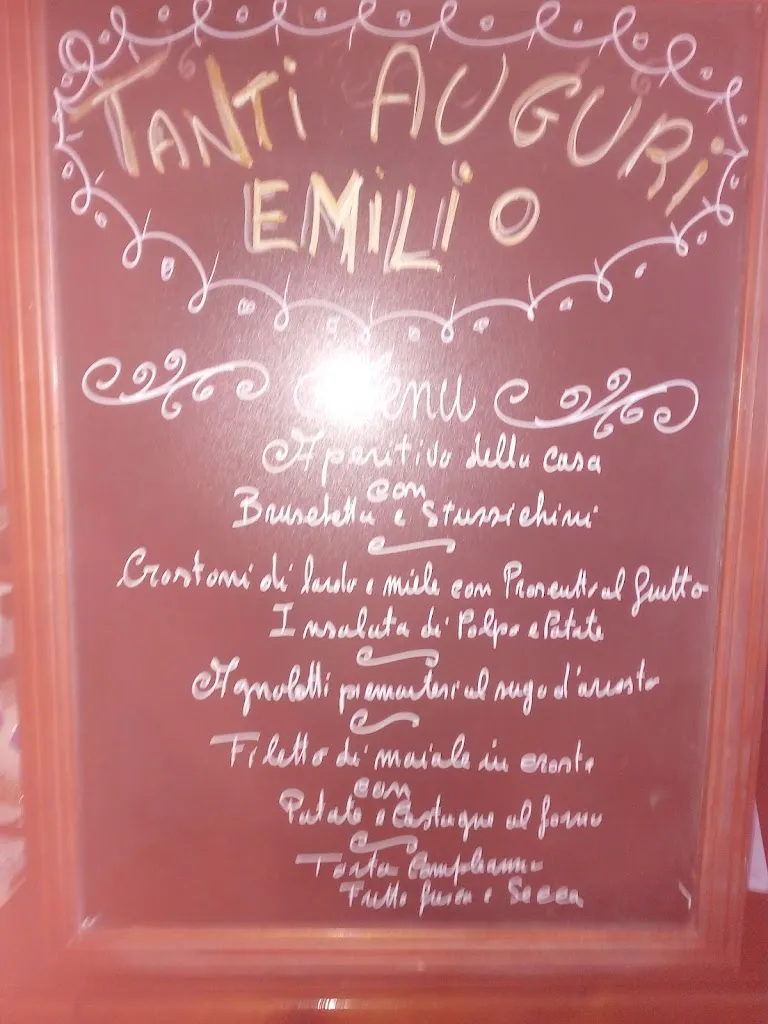 TANTI AUGURI
EMILIO
Menu
Aperitivo della casa
con
Bruschetta e Stuzzichini
Crostoni di lardo e miele con Prosciutto al
Insalata di Polpo e Patate
Agnolotti piemontesi al sugo d'arrosto
Filetto di maiale in crosta
con
Patate e Castagne al forno
Torta Compleanno
Frutta fresca e Secca